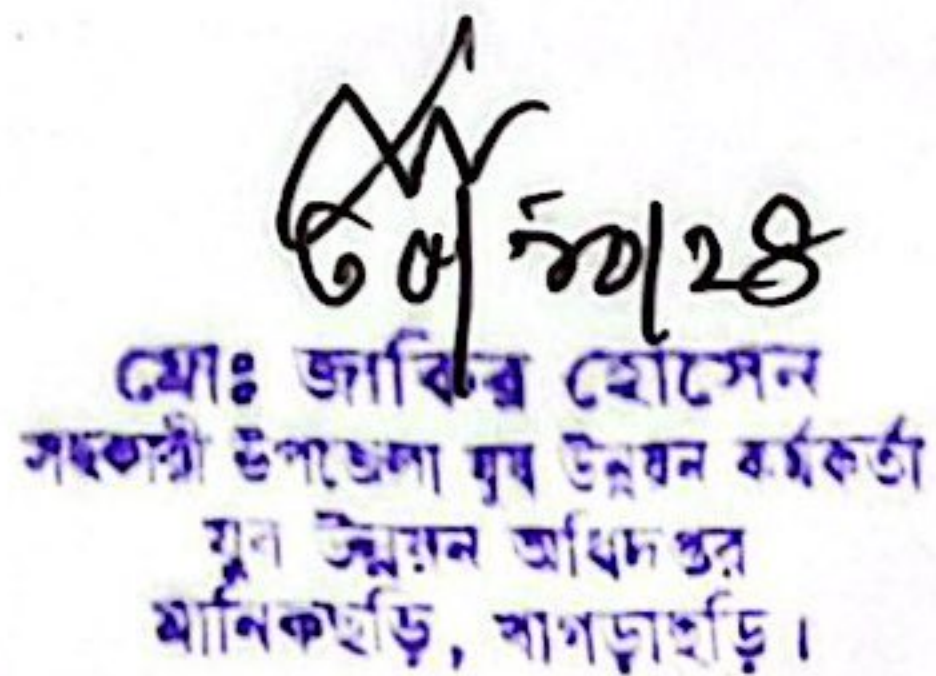 ৩০/১০/২৪
মোঃ জাকির হোসেন
সহকারী উপজেলা যুব উন্নয়ন কর্মকর্তা
যুব উন্নয়ন অধিদপ্তর
মানিকছড়ি, খাগড়াছড়ি।